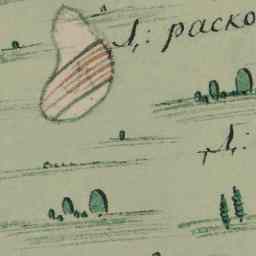 Л: раско
Л: